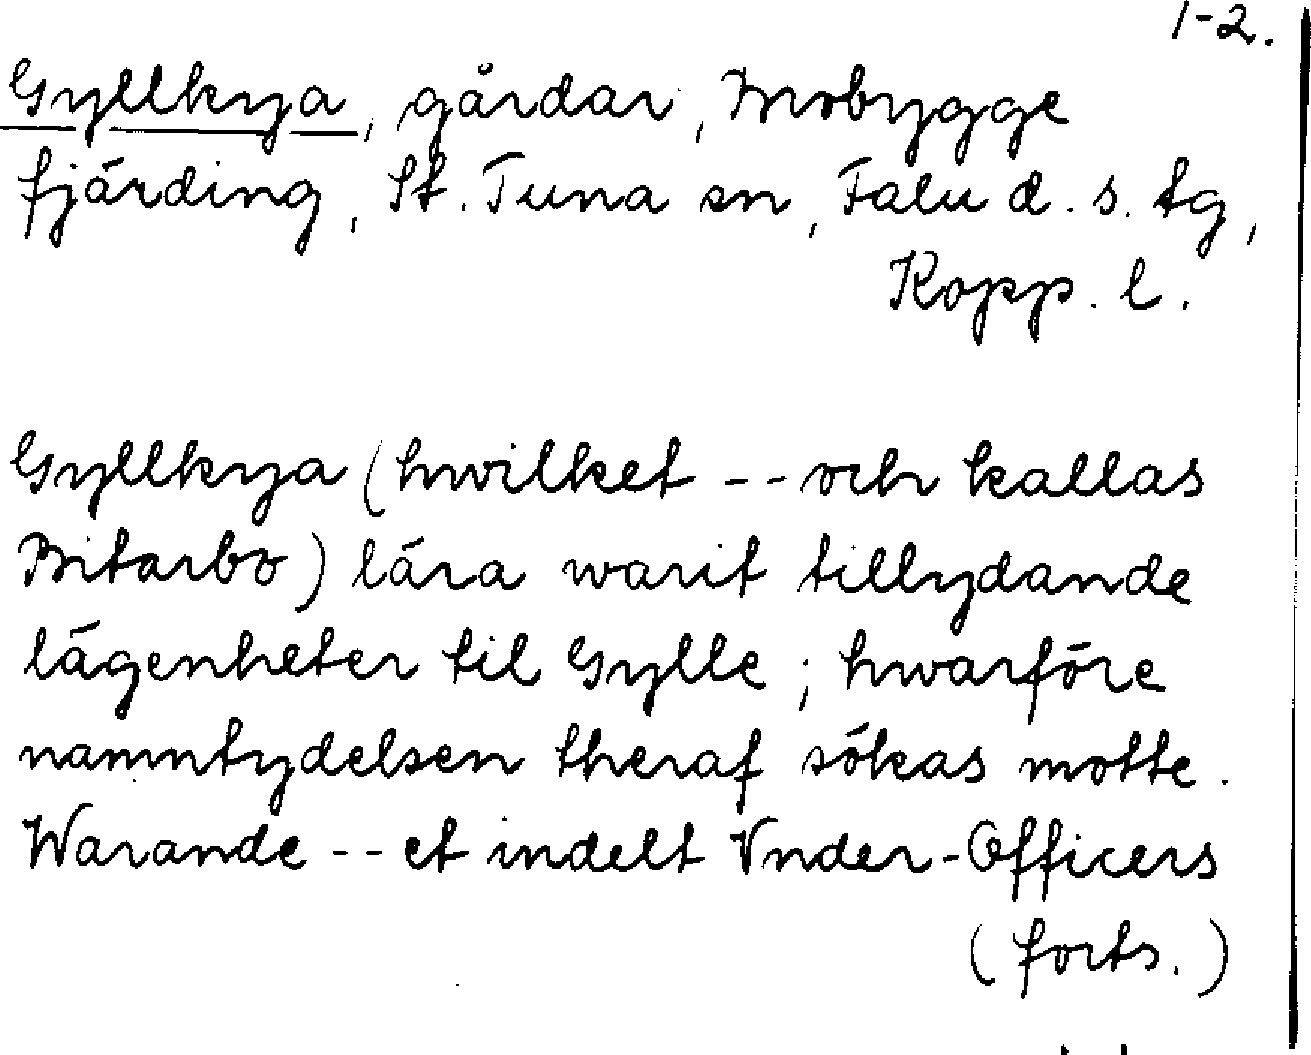 1-2.
Gyllkya, gårdar, Mobygge
fjärding, St. Tuna sn, Falu d. s. tg,
Kopp. l.
Gyllkya (hwilket -- och kallas
Bitarbo) lära warit tillydande
lägenheter til Gylle; hwarföre
namntydelsen theraf sökas motte.
Warande -- et indelt Vnder-Officers
(forts.)